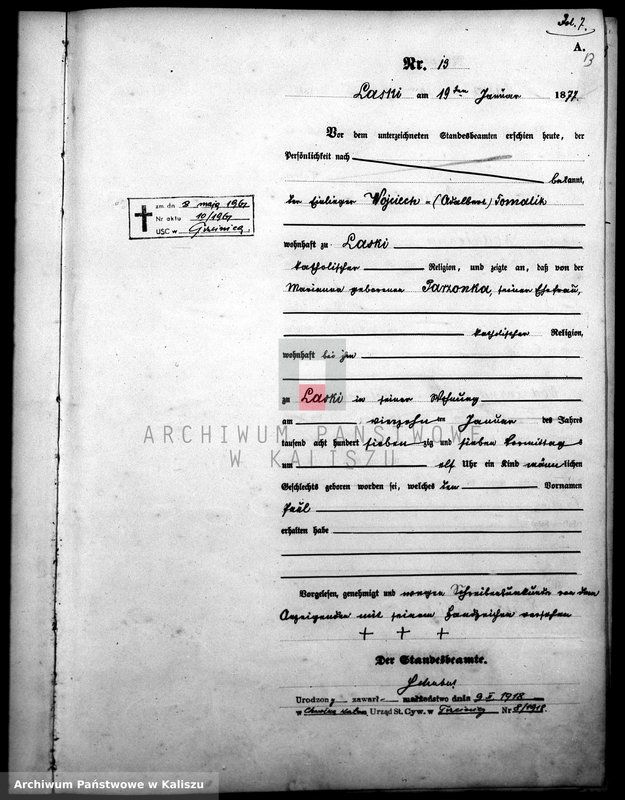 Fol. 7.
A.
13
Nr. 19
Laski am 19ten Januar 1877
Vor dem unterzeichneten Standesbeamten erschien heute, der
Persönlichkeit nach
bekannt,
der Einlieger Wojciech (Adalbert) Tomalik
wohnhaft zu Laski
katholischer Religion, und zeigte an, daß von der
Marianna geborenen Parzonka, seiner Ehefrau,
katholischer Religion,
wohnhaft bei ihm
zu Laski in seiner Wohnung
am vierzehnten Januar des Jahres
tausend acht hundert siebenzig und sieben Vormittags
um elf Uhr ein Kind männlichen
Geschlechts geboren worden sei, welches den Vornamen
Paul
erhalten habe
Vorgelesen, genehmigt und wegen Schreibensunkunde von dem
Anzeigenden mit seinem Handzeichen versehen
+ + +
Der Standesbeamte.
zm dn 3 maja 1961
Nr aktu 10/1961
USC w
Urodzony zawarł małżeństwo dnia 9.X.1918
w Urząd St. Cyw. w Nr 8/1918
ARCHIWUM PAŃSTWOWE
W KALISZU
Archiwum Państwowe w Kaliszu